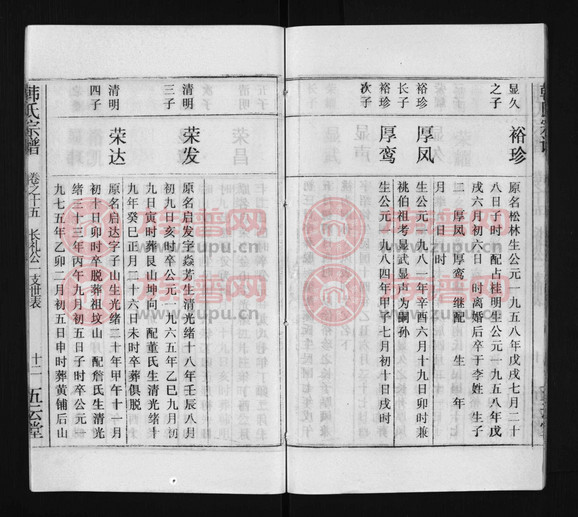 显久
之子
裕珍
原名松林生公元一九五八年戊戌七月二十
八日子时 配占桂明生公元一九五八年戊
戌六月初六日 时离婚后卒于李姓 生子
二 厚凤 厚鸾 继配 生 年
月 日 时
裕珍
长子
厚凤
生公元一九八一年辛酉六月十九日卯时兼
祧伯祖考显武显声为嗣孙
裕珍
次子
厚鸾
生公元一九八四年甲子七月初十日戌时
清明
三子
荣发
原名启发字焱芳生清光绪十八年壬辰八月
初九日亥时卒公元一九六五年乙巳九月初
九日寅时葬艮山坤向 配董氏生清光绪十
九年癸巳正月二十六日未时卒葬俱脱
清明
四子
荣达
原名启达字子山生光绪二十年甲午十一月
初十日卯时卒脱葬祖坟山 配詹氏生清光
绪三十三年丙午九月初五日子时卒公元一
九七五年乙卯二月初五日申时葬黄铺后山
韩氏宗谱
卷之十五 长礼公支世表
十二
五云堂
族谱网
www.zupu.cn
族谱网
www.zupu.cn
族谱网
www.zupu.cn
族谱网
www.zupu.cn